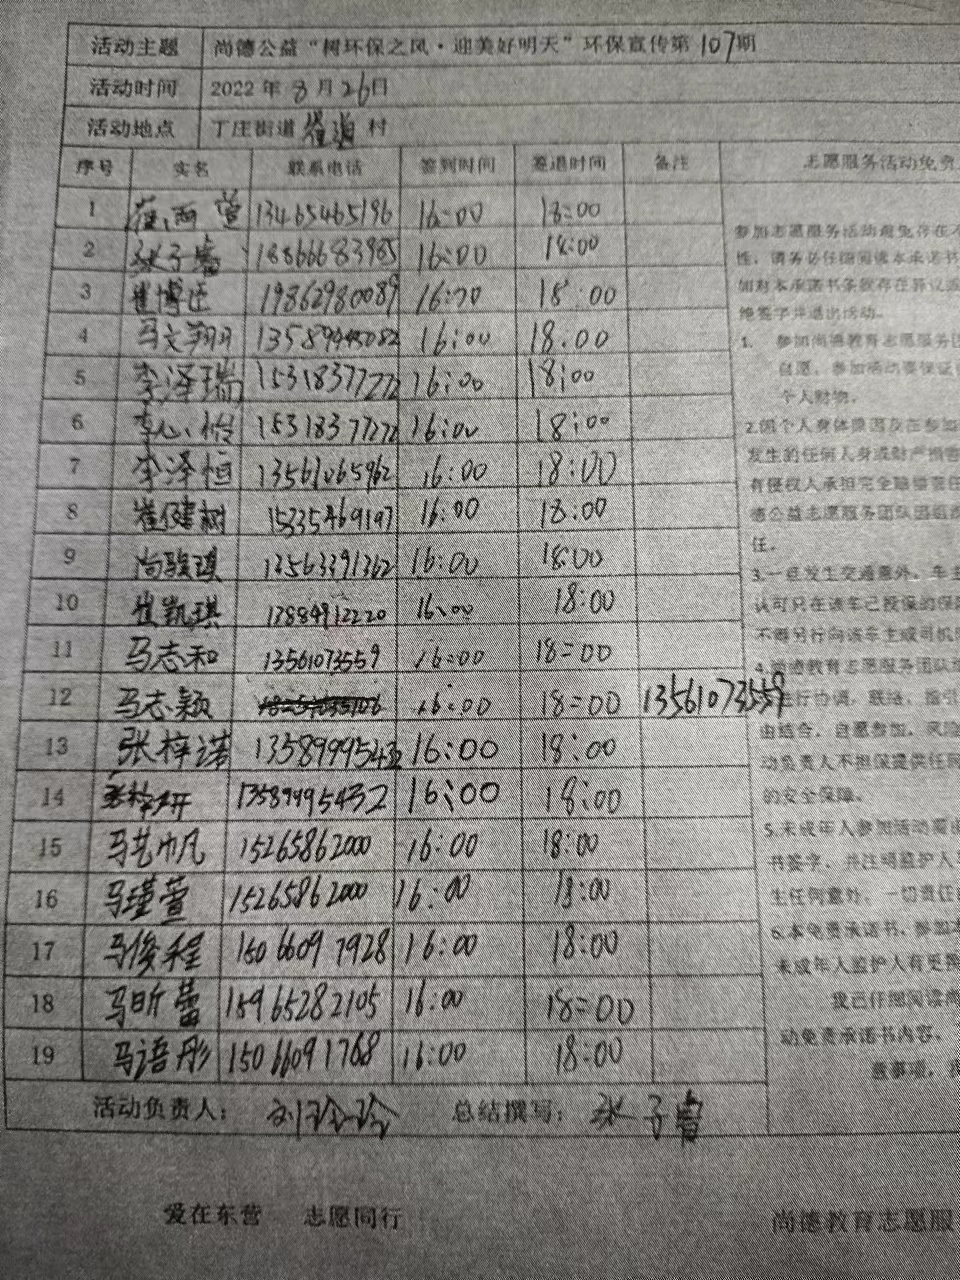 活动主题 尚德公益“树环保之风·迎美好明天”环保宣传第107期
活动时间 2022年8月26日
活动地点 丁庄街道 村
序号 实名 联系电话 签到时间 签退时间 备注 志愿服务活动免责
1 13465465196 16:00 18:00
2 张子睿 18866683985 16:00 18:00
3 崔博还 19862980089 16:00 18:00
4 马文翔 16:00 18:00
5 李泽瑞 15318377272 16:00 18:00
6 李心怡 15318377272 16:00 18:00
7 李泽恒 13561065962 16:00 18:00
8 崔健树 15335469197 16:00 18:00
9 尚骏琪 13563391362 16:00 18:00
10 崔凯琪 16:00 18:00
11 马志和 13561073559 16:00 18:00
12 马志颖 16:00 18:00 13561073559
13 张梓诺 13589995432 16:00 18:00
14 13589995432 16:00 18:00
15 马艺帆 15265862000 16:00 18:00
16 马瑾萱 15265862000 16:00 18:00
17 马俊程 15066097928 16:00 18:00
18 马昕蕾 15965282105 16:00 18:00
19 马语彤 15066091768 16:00 18:00
参加志愿服务活动避免存在不
性，请务必仔细阅读本承诺书
如对本承诺书条款存在异议或
绝签字并退出活动。
1. 参加尚德教育志愿服务团
自愿，参加活动要保证
个人财物。
2.因个人身体原因及在参加
发生的任何人身或财产损害
有侵权人承担完全赔偿责任
德公益志愿服务团队因组织
任。
3.一旦发生交通意外，车主
认可只在该车已投保的保险
不得另行向该车主或司机
4.尚德教育志愿服务团队
进行协调、联络、指引
由结合，自愿参加，风险
动负责人不担保提供任何
的安全保障。
5.未成年人参加活动需由
书签字，并注明监护人
生任何意外，一切责任
6.本免责承诺书，参加
未成年人监护人有更换
我已仔细阅读尚
动免责承诺书内容，
意事项，我
活动负责人：刘玲玲 总结撰写：张子睿
爱在东营 志愿同行 尚德教育志愿服